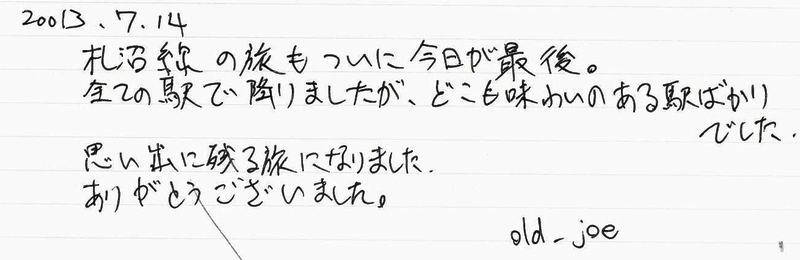 20013.7.14
札沼線の旅もついに今日が最後。
全ての駅で降りましたが、どこも味わいのある駅ばかり
でした.
思い出に残る旅になりました.
ありがとうございました。
old_joe